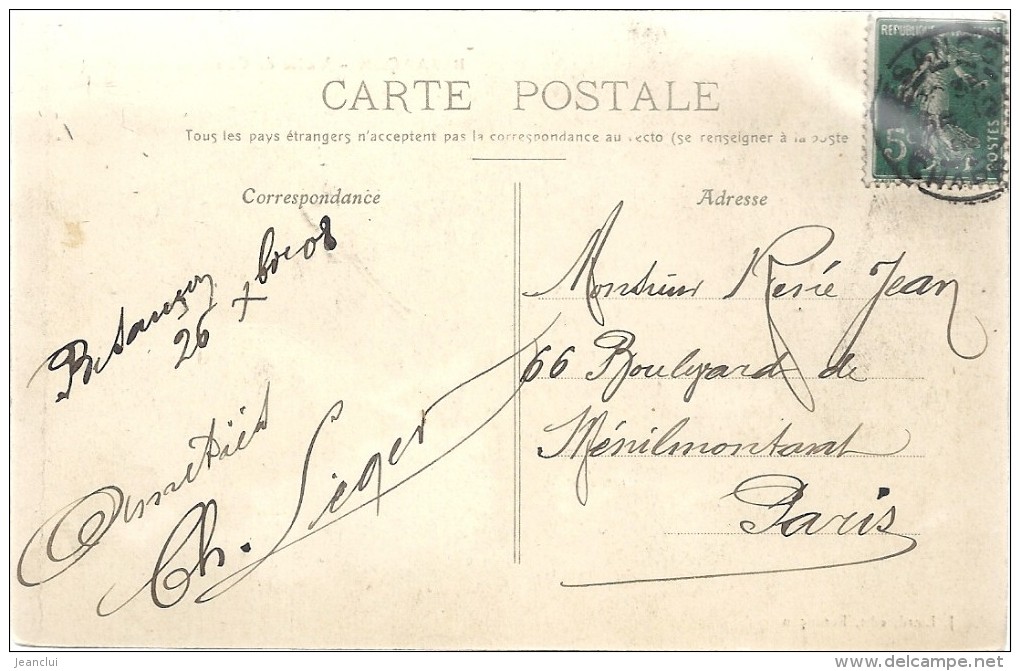 REPUBLIQUE FRANCAISE
POSTES
5c
CARTE POSTALE
Tous les pays étrangers n'acceptent pas la correspondance au recto (se renseigner à la poste
Correspondance
Adresse
Besançon
26 Xbre 08
Amitiés
Ch. Léger
Monsieur René Jean
66 Boulevard de
Ménilmontant
Paris
jeanclui
delcampe.net